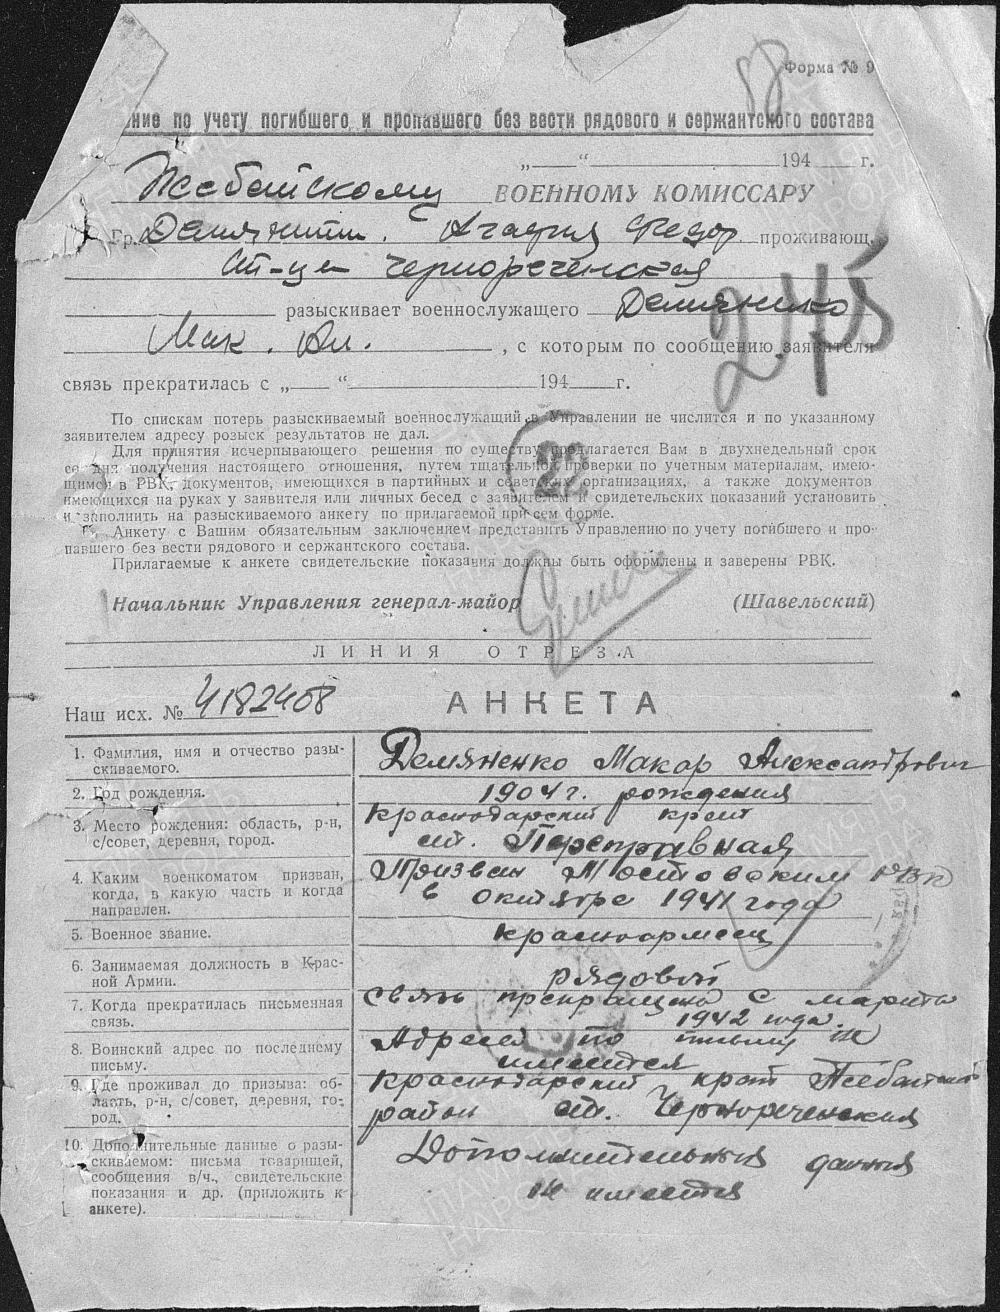 Форма № 9
ние по учету погибшего и пропавшего без вести рядового и сержантского состава
„ “ 194 г.
Псебайскому ВОЕННОМУ КОМИССАРУ
Гр. Агафия Федор проживающ.
ст-ца Чернореченская
разыскивает военнослужащего Демяненко
Мак. Ал. , с которым по сообщению заявителя
245
связь прекратилась с „ “ 194 г.
По спискам потерь разыскиваемый военнослужащий в Управлении не числится и по указанному
заявителем адресу розыск результатов не дал.
Для принятия исчерпывающего решения по существу предлагается Вам в двухнедельный срок
со дня получения настоящего отношения, путем тщательной проверки по учетным материалам, имею-
щимся в РВК, документов, имеющихся в партийных и советских организациях, а также документов
имеющихся на руках у заявителя или личных бесед с заявителем и свидетельских показаний установить
и заполнить на разыскиваемого анкету по прилагаемой при сем форме.
22
Анкету с Вашим обязательным заключением представить Управлению по учету погибшего и про-
павшего без вести рядового и сержантского состава.
Прилагаемые к анкете свидетельские показания должны быть оформлены и заверены РВК.
Начальник Управления генерал-майор (Шавельский)
ЛИНИЯ ОТРЕЗА
Наш исх. № 4182408 АНКЕТА
1. Фамилия, имя и отчество разы-
скиваемого.
Демяненко Макар Александрович
2. Год рождения.
1904 г. рождения
3. Место рождения: область, р-н,
с/совет, деревня, город.
Краснодарский край
ст. Переправная
4. Каким военкоматом призван,
когда, в какую часть и когда
направлен.
Призван Мостовским РВК
в октябре 1941 года
5. Военное звание.
красноармеец
6. Занимаемая должность в Крас-
ной Армии.
рядовой
7. Когда прекратилась письменная
связь.
связь прекращена с марта
1942 года.
8. Воинский адрес по последнему
письму.
Адреса по письму не
имеется
9. Где проживал до призыва: об-
ласть, р-н, с/совет, деревня, го-
род.
Краснодарский край Псебайский
район ст. Чернореченская
10. Дополнительные данные о разы-
скиваемом: письма товарищей,
сообщения в/ч., свидетельские
показания и др. (приложить к
анкете).
Дополнительных данных
не имеется
ПАМЯТЬ
НАРОДА